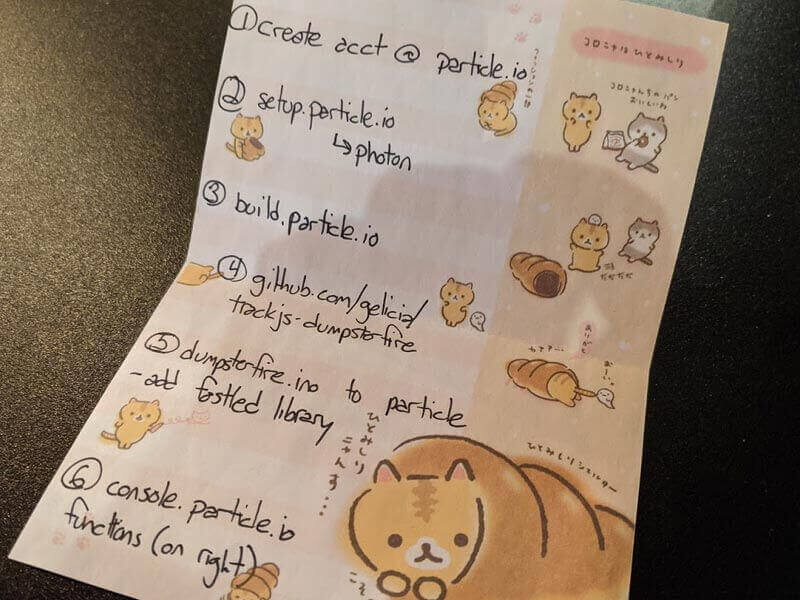 ① create acct @ particle.io
② setup.particle.io
↳ photon
③ build.particle.io
④ github.com/gelicia/
trackjs-dumpsterfire
⑤ dumpsterfire.ino to particle
- add fastled library
⑥ console.particle.io
functions (on right)
コロニャは ひとみしり
コロニャんちの パン
おいしいね
ありがと
おーい。
ひとみしり
ニャんす…
ひとみしりシェルター
こそ